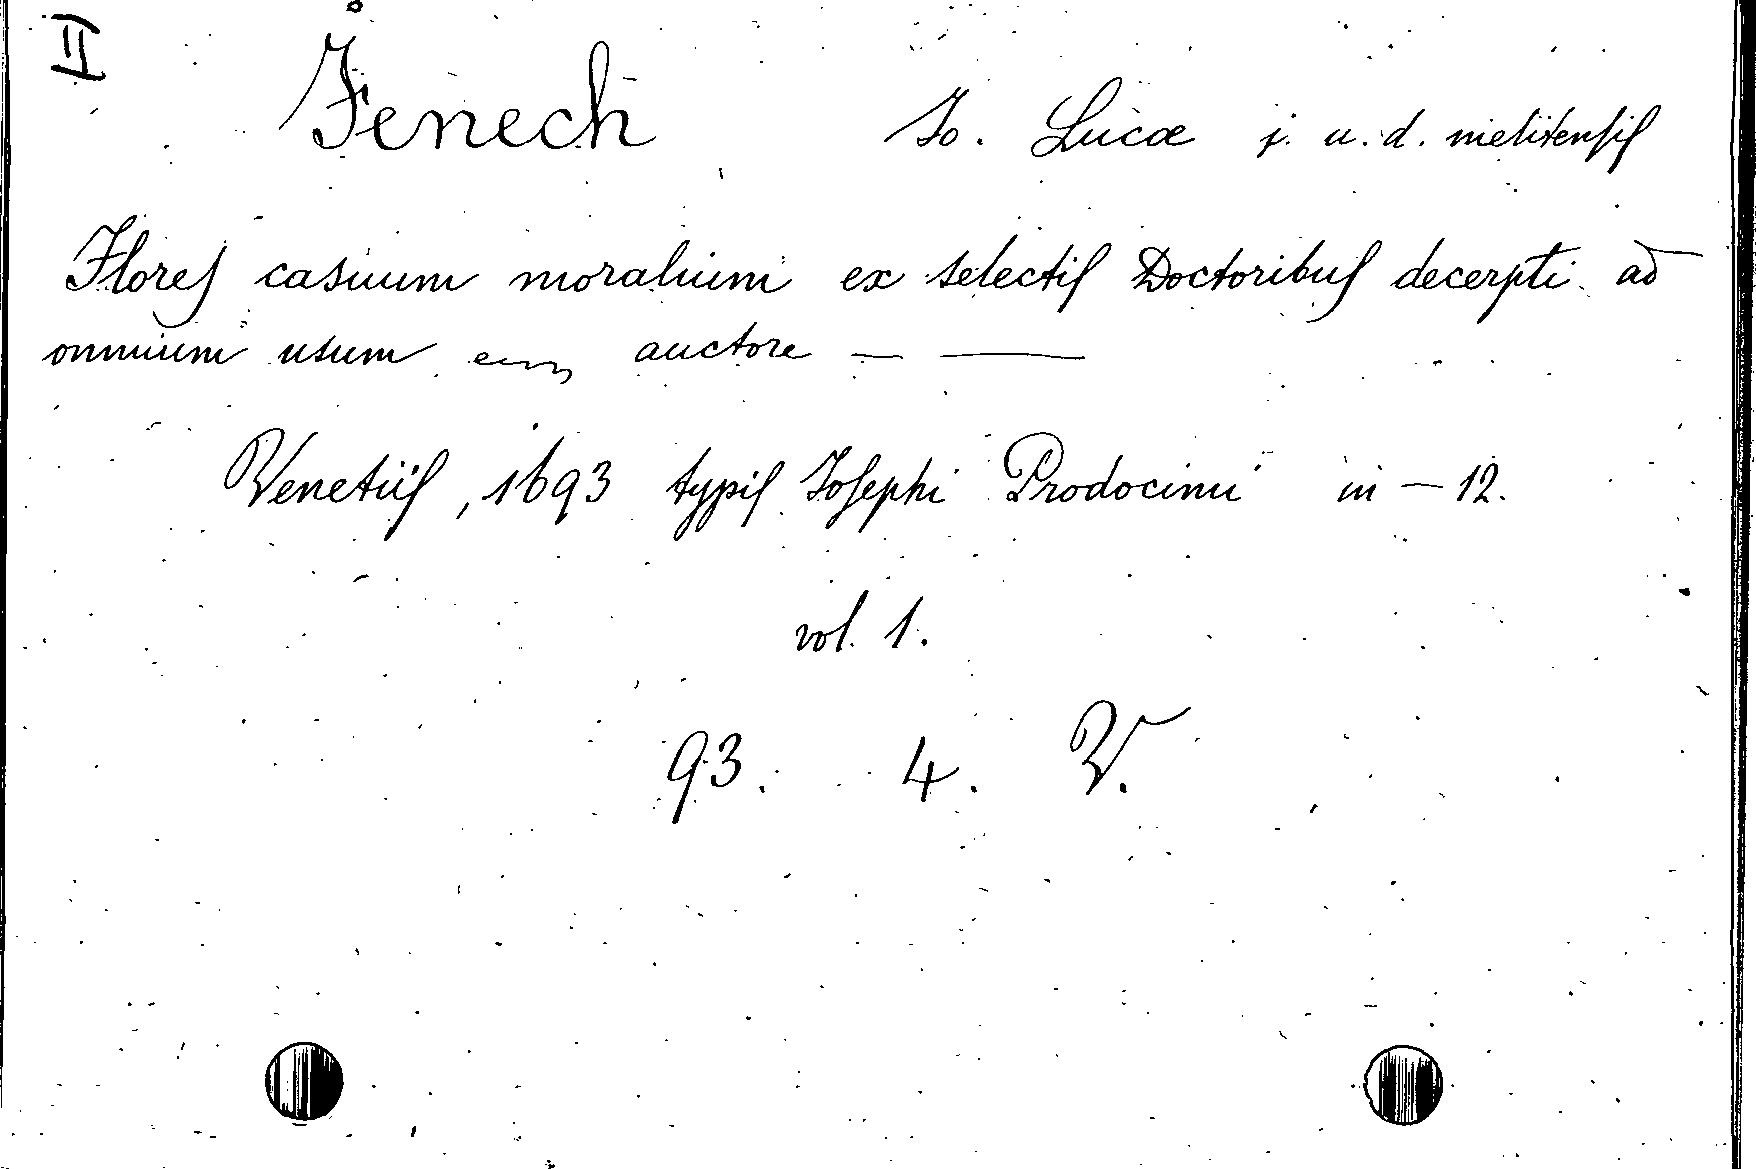 II
Fenech Jo. Lucæ j. u. d. melitensis
Flores casuum moralium ex selectis Doctoribus decerpti ad
omnium usum auctore — —
Venetiis, 1693 typis Josephi Prodocimi in — 12.
vol. 1.
93. 4. V.